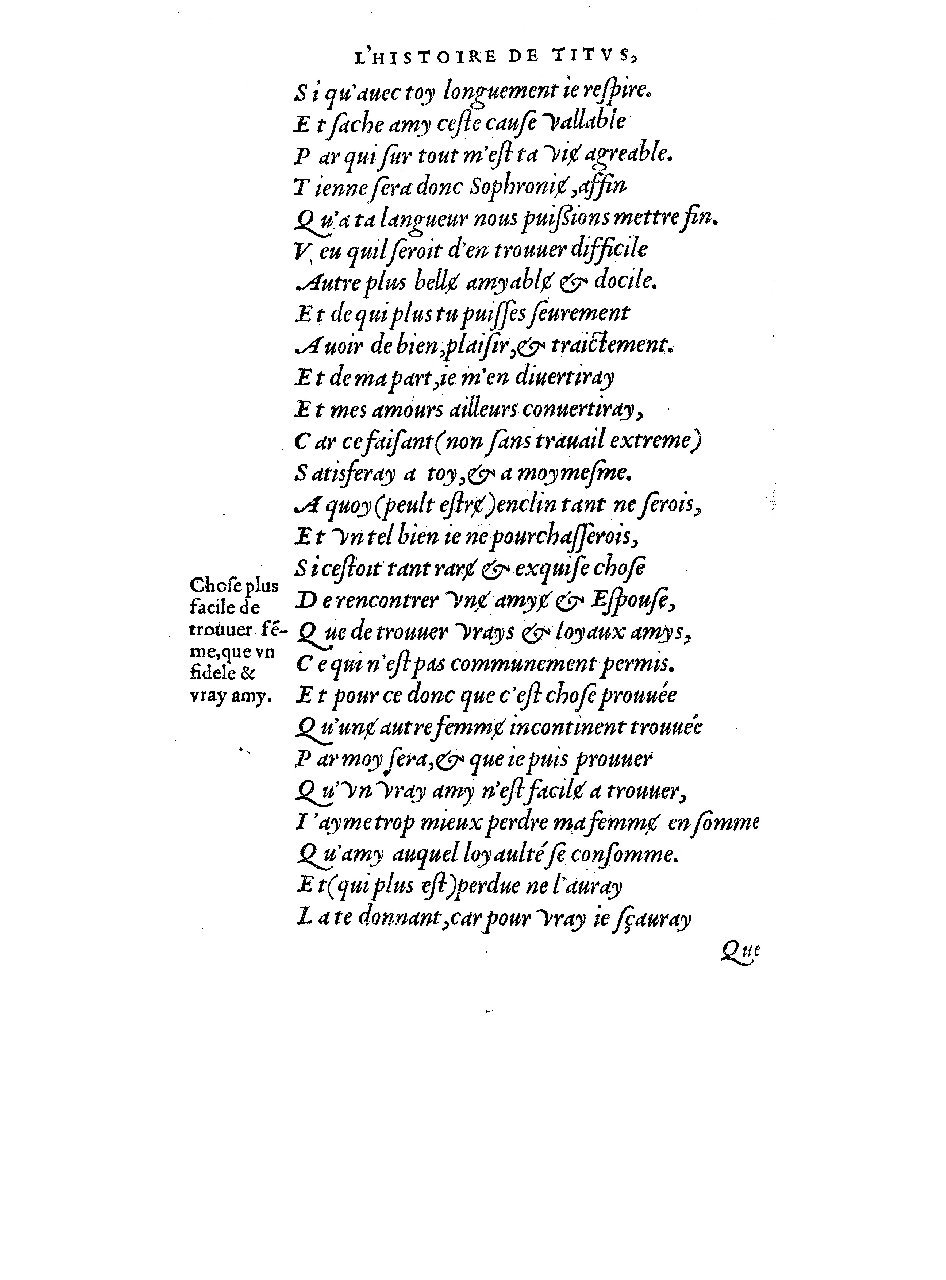 L'HISTOIRE DE TITVS,
Si qu'auec toy longuement ie reſpire.
Et ſache amy ceſte cauſe vallable
Par qui ſur tout m'eſt ta viɇ agreable.
Tienne ſera donc Sophroniɇ, affin
Qu'a ta langueur nous puiſsions mettre fin.
Veu quil ſeroit d'en trouuer difficile
Autre plus bellɇ amyablɇ & docile.
Et de qui plus tu puiſſes ſeurement
Auoir de bien, plaiſir, & traictement.
Et de ma part, ie m'en diuertiray
Et mes amours ailleurs conuertiray,
Car ce faiſant (non ſans trauail extreme)
Satisferay a toy, & a moymeſme.
A quoy (peult eſtrɇ) enclin tant ne ſerois,
Et vn tel bien ie ne pourchaſſerois,
Si ceſtoit tant rarɇ & exquiſe choſe
De rencontrer vnɇ amyɇ & Eſpouſe,
Que de trouuer vrays & loyaux amys,
Ce qui n'eſt pas communement permis.
Et pour ce donc que c'eſt choſe prouuée
Qu'unɇ autre femmɇ incontinent trouuée
Par moy ſera, & que ie puis prouuer
Qu'vn vray amy n'eſt facilɇ a trouuer,
I'ayme trop mieux perdre ma femmɇ en ſomme
Qu'amy auquel loyaulté ſe conſomme.
Et (qui plus eſt) perdue ne l'auray
La te donnant, car pour vray ie ſçauray
Que
Choſe plus
facile de
trouuer fē-
me, que vn
fidele &
vray amy.